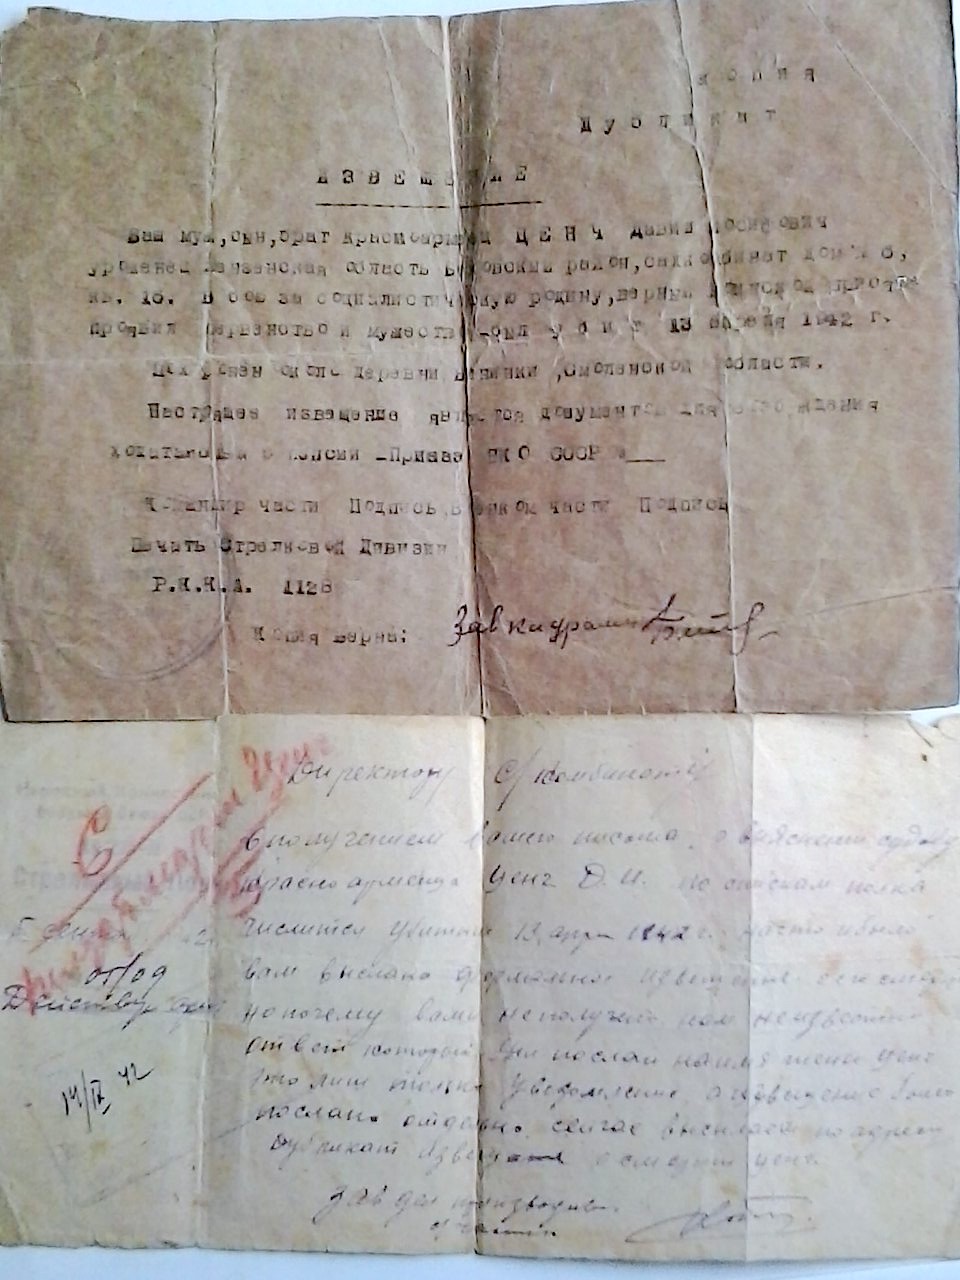 копия
Дубликат
ИЗВЕЩЕНИЕ
Ваш муж, сын, брат красноармеец ЦЕНЧ Давид Иосифович
уроженец Пензенская область район, дом № 6,
кв. 16. В бою за социалистическую родину, верный воинской присяге
проявив геройство и мужество был убит 13 апреля 1942 г.
Похоронен около деревни Смоленской области.
Настоящее извещение является документом для возбуждения
ходатайства о пенсии Приказ НКО СССР № ___
Командир части Подпись, Военком части Подпись
Печать Стрелковой Дивизии
Р.К.К.А. 1128
Копия верна: Зав кадрами
Директору С/Комбината
С получением вашего письма, о выяснении судьбы
Красноармейца Ценч Д. И. по спискам полка
числится убитым 13 апр 1942 г. часто было
вам выслано формальное извещение о его смерти
но почему вами не получено нам неизвестно
ответ который Вы послан на имя жены Ценч
это лиш только уведомление, а извещение было
послано отдельно, сейчас высылаем по адресу
дубликат извещения о смерти Ценч.
Зав дел производ.
с. части
С
5 сент 42
от/од
Действ.
14/IX 42